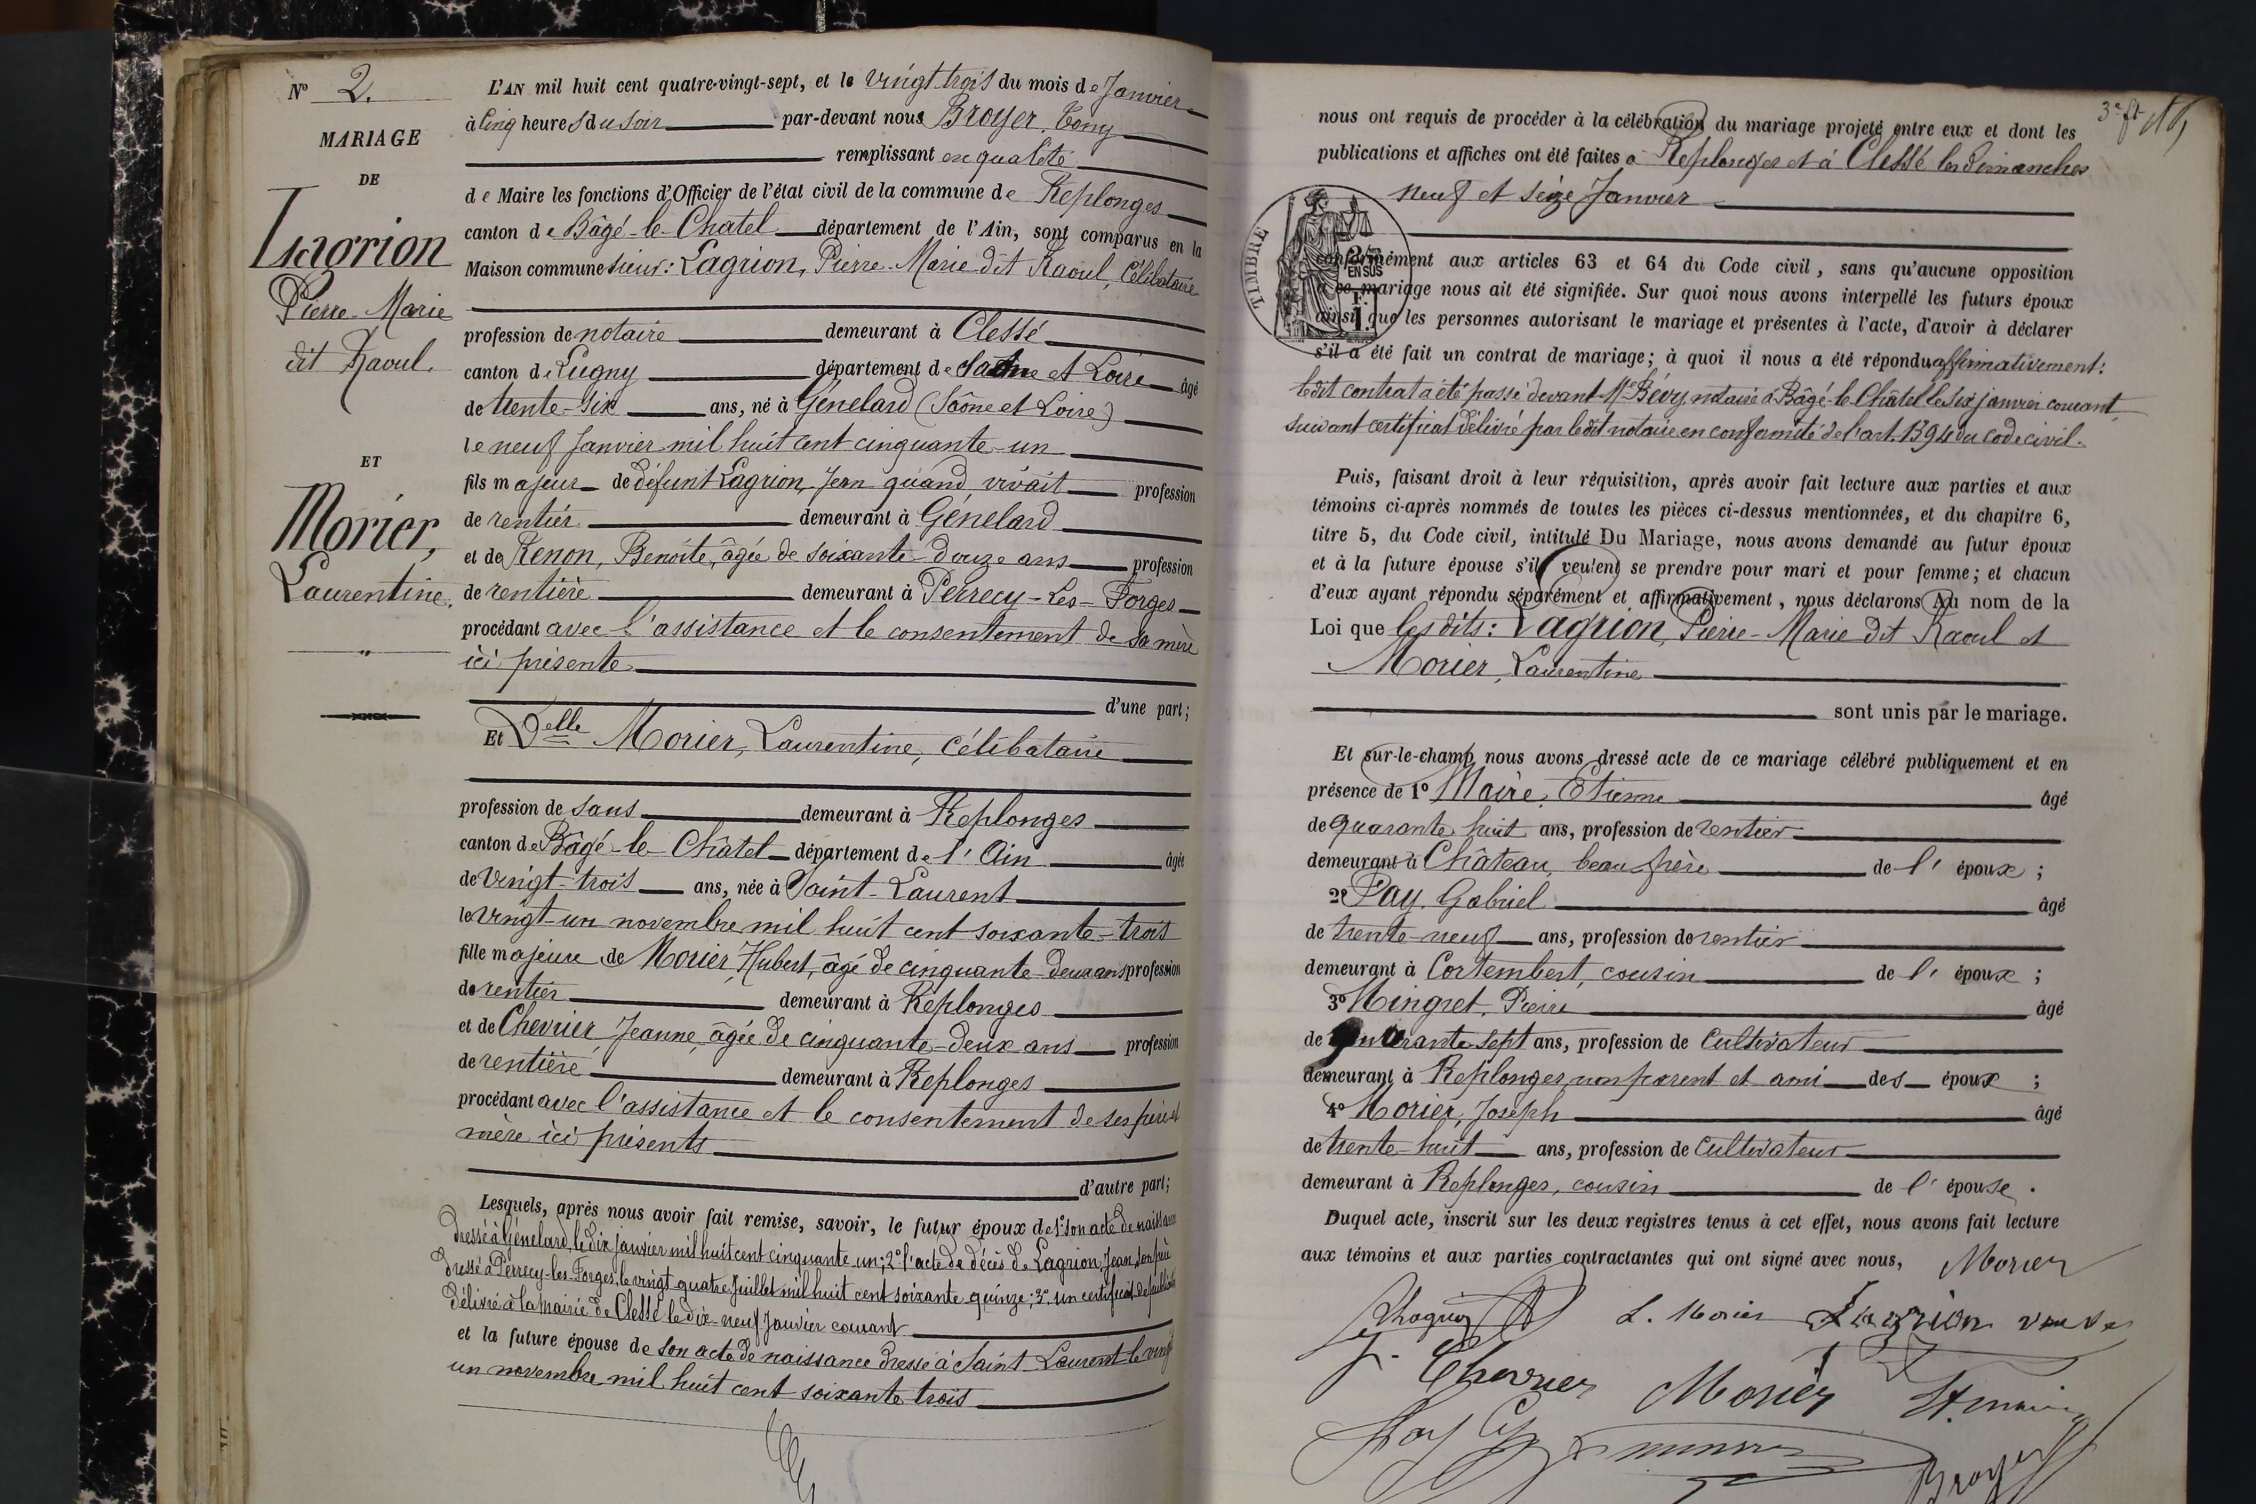 N° 2.
MARIAGE
DE
Lagrion
Pierre-Marie
dit Raoul.
ET
Morier,
Laurentine.
L'AN mil huit cent quatre-vingt-sept, et le vingt trois du mois de Janvier
à cinq heures du soir par-devant nous Broyer, Tony
remplissant en qualité
de Maire les fonctions d'Officier de l'état civil de la commune de Replonges
canton de Bâgé-le-Chatel département de l'Ain, sont comparus en la
Maison commune sieur: Lagrion, Pierre-Marie dit Raoul, Célibataire
profession de notaire demeurant à Clessé
canton de Lugny département de Saône et Loire âgé
de trente-six ans, né à Génelard (Saône et Loire)
le neuf Janvier mil huit cent cinquante-un
fils majeur de défunt Lagrion, Jean quand vivait profession
de rentier demeurant à Génelard
et de Renon, Benoîte, âgée de soixante-douze ans profession
de rentière demeurant à Perrecy-Les-Forges
procédant avec l'assistance et le consentement de sa mère
ici présente
d'une part;
Et Delle Morier, Laurentine, célibataire
profession de sans demeurant à Replonges
canton de Bâgé-le-Châtel département de l'Ain âgée
de vingt-trois ans, née à Saint-Laurent
le vingt-un novembre mil huit cent soixante-trois
fille majeure de Morier, Hubert, âgé de cinquante-deux ans profession
de rentier demeurant à Replonges
et de Chevrier Jeanne, âgée de cinquante-deux ans profession
de rentière demeurant à Replonges
procédant avec l'assistance et le consentement de ses père et
mère ici présents
d'autre part;
Lesquels, après nous avoir fait remise, savoir, le futur époux de 1° son acte de naissance
dressé à Génelard, le dix janvier mil huit cent cinquante un; 2° l'acte de décès de Lagrion, Jean, son père
dressé à Perrecy-les-Forges, le vingt quatre Juillet mil huit cent soixante quinze; 3° un certificat de publication
délivré à la mairie de Clessé le dix-neuf Janvier courant
et la future épouse de son acte de naissance dressé à Saint-Laurent le vingt
un novembre mil huit cent soixante trois
3e ft
nous ont requis de procéder à la célébration du mariage projeté entre eux et dont les
publications et affiches ont été faites à Replonges et à Clessé les dimanches
neuf et seize Janvier
TIMBRE
2/10 EN SUS
1 F.
conformément aux articles 63 et 64 du Code civil, sans qu'aucune opposition
à ce mariage nous ait été signifiée. Sur quoi nous avons interpellé les futurs époux
ainsi que les personnes autorisant le mariage et présentes à l'acte, d'avoir à déclarer
s'il a été fait un contrat de mariage; à quoi il nous a été répondu affirmativement:
ledit contrat a été passé devant Me Bévy notaire à Bâgé-le-Châtel le six janvier courant
suivant certificat délivré par ledit notaire en conformité de l'art. 1394 du code civil.
Puis, faisant droit à leur réquisition, après avoir fait lecture aux parties et aux
témoins ci-après nommés de toutes les pièces ci-dessus mentionnées, et du chapitre 6,
titre 5, du Code civil, intitulé Du Mariage, nous avons demandé au futur époux
et à la future épouse s'ils veulent se prendre pour mari et pour femme; et chacun
d'eux ayant répondu séparément et affirmativement, nous déclarons Au nom de la
Loi que les dits: Lagrion, Pierre-Marie dit Raoul et
Morier, Laurentine
sont unis par le mariage.
Et sur-le-champ nous avons dressé acte de ce mariage célébré publiquement et en
présence de 1° Maire, Etienne âgé
de quarante huit ans, profession de rentier
demeurant à Château, beau frère de l'époux;
2° Pay, Gabriel âgé
de trente-neuf ans, profession de rentier
demeurant à Cortembert, cousin de l'époux;
3° Mingret, Pierre âgé
de quarante sept ans, profession de cultivateur
demeurant à Replonges, non parent et ami des époux;
4° Morier, Joseph âgé
de trente-huit ans, profession de cultivateur
demeurant à Replonges, cousin de l'épouse.
Duquel acte, inscrit sur les deux registres tenus à cet effet, nous avons fait lecture
aux témoins et aux parties contractantes qui ont signé avec nous, Morier
L. Morier Lagrion veuve
J. Chevrier Morier J Et. maire
Broyer